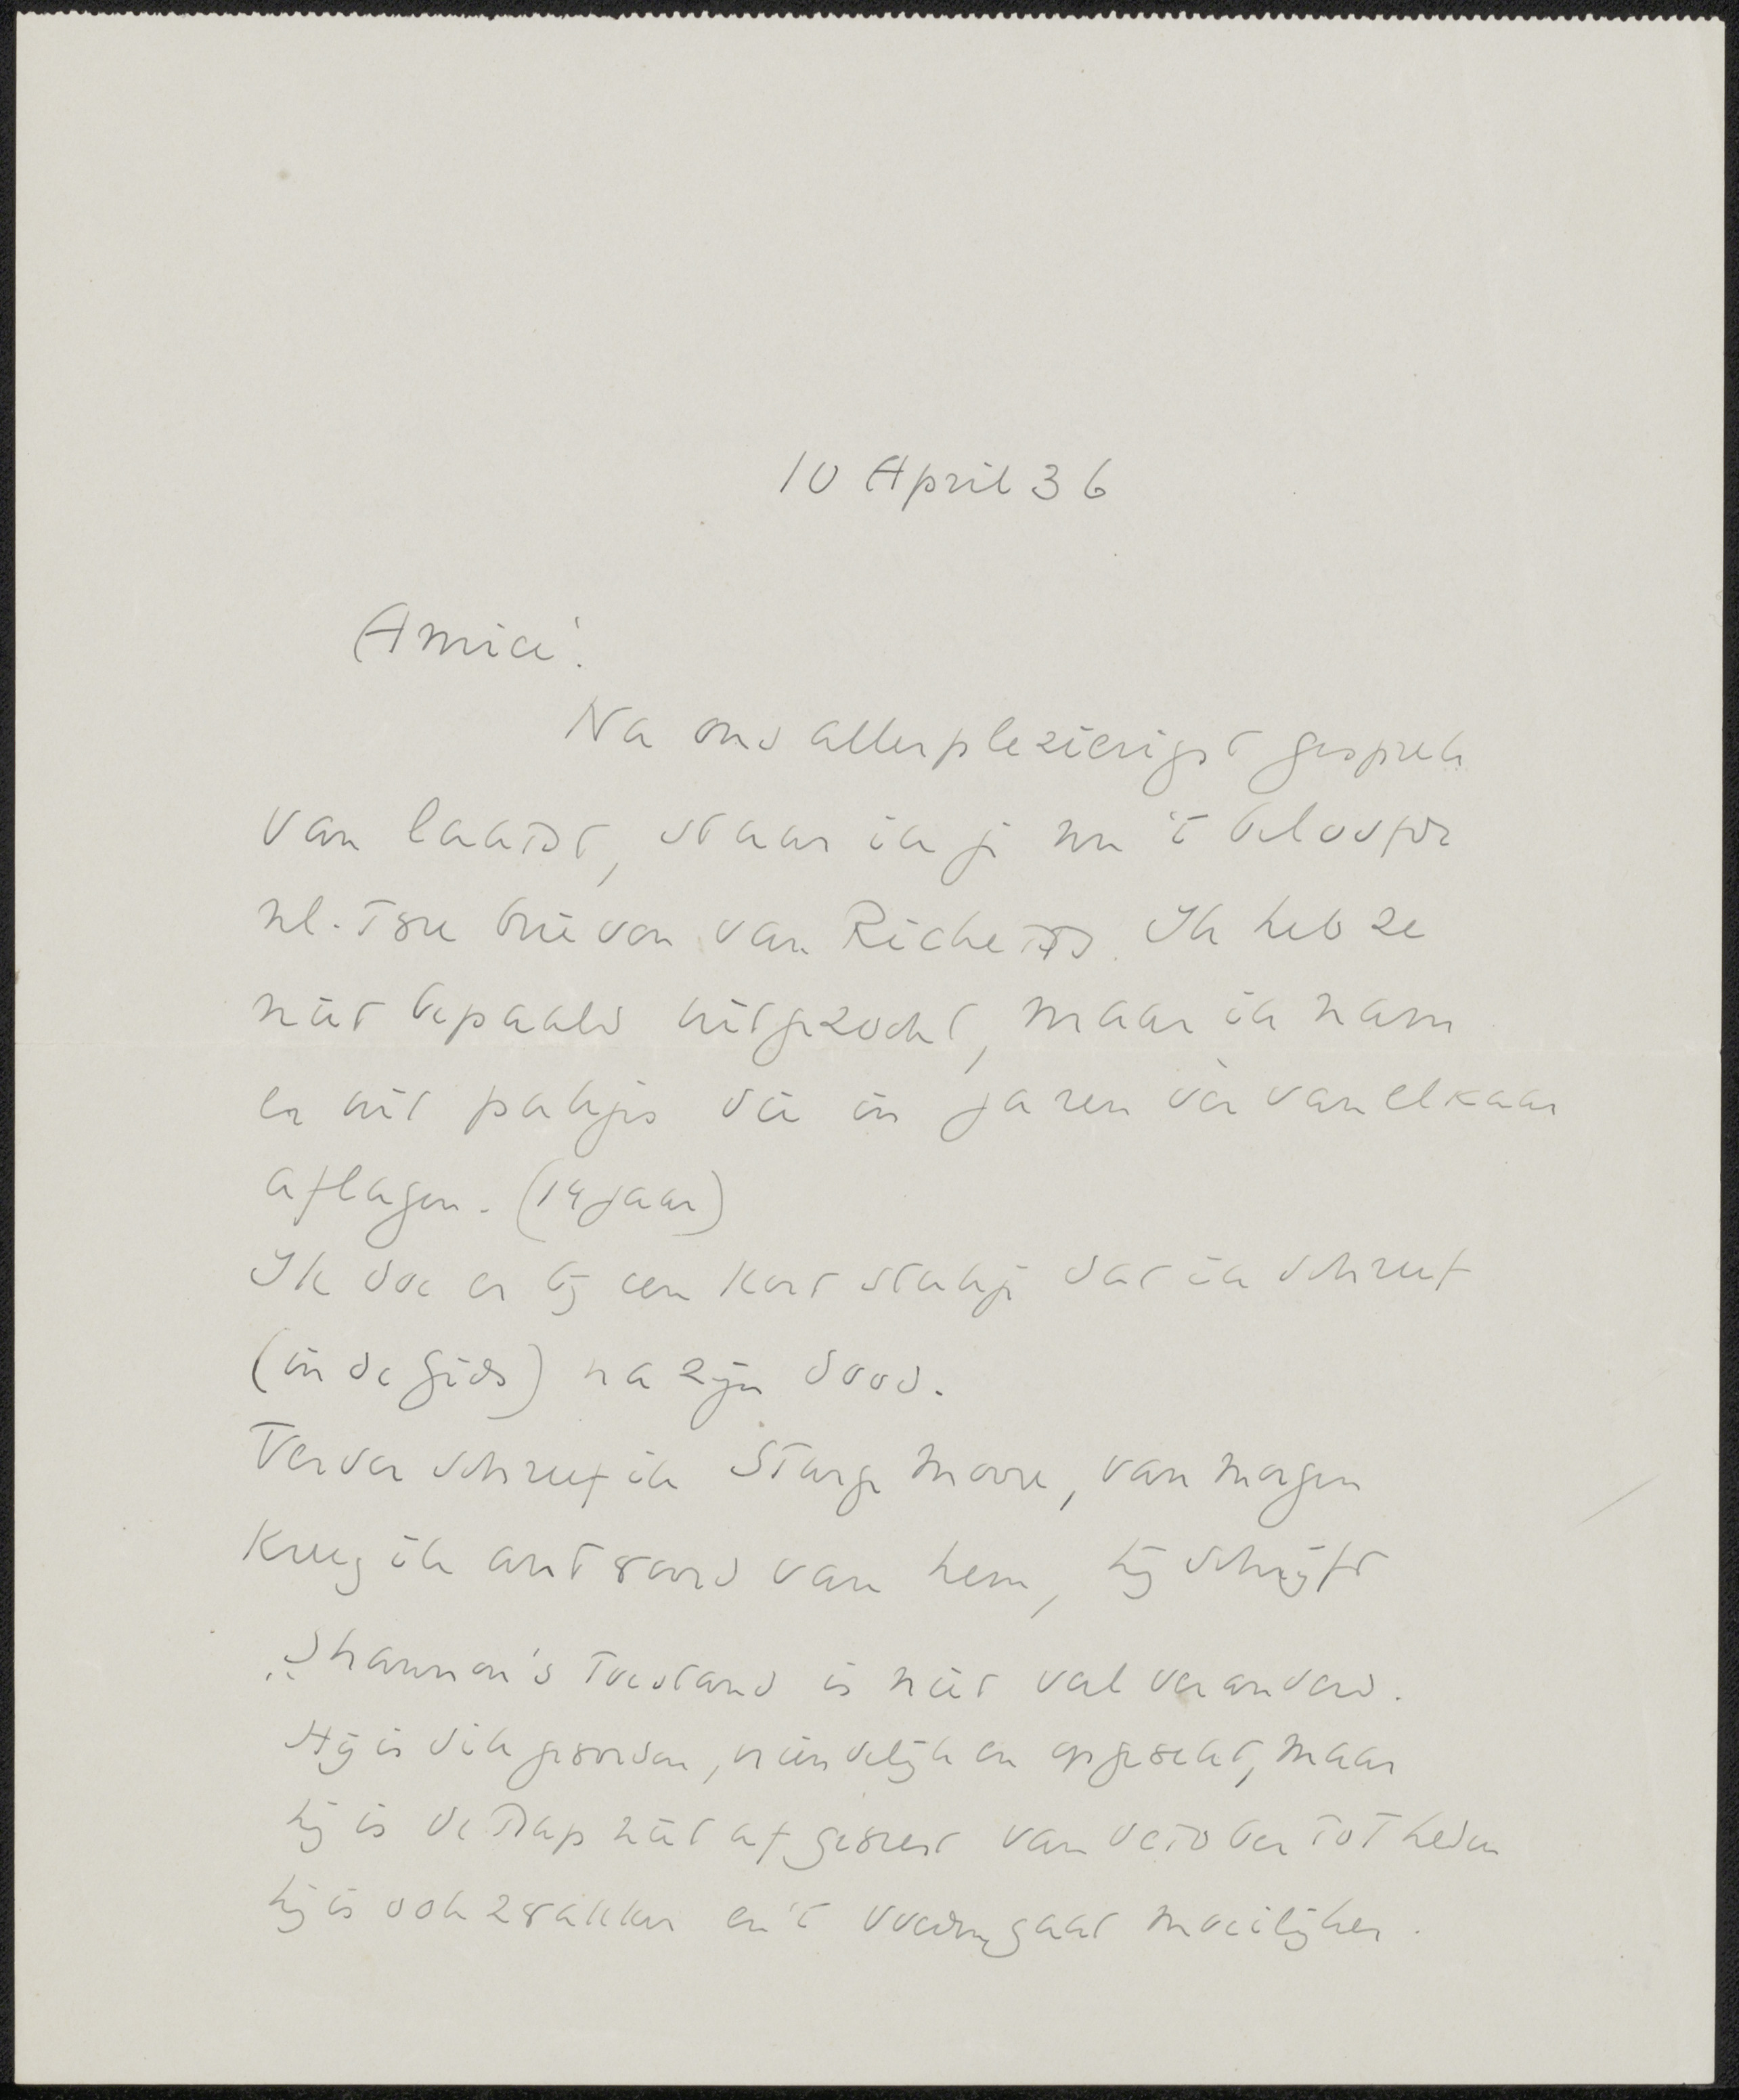 10 April 36
Amice!
Na ons allerplezierigst gesprek
van laatst, stuur ik je nu 't beloofde
nl. twee brieven van Ricketts. Ik heb ze
niet bepaald uitgezocht, maar ik nam
er uit pakjes die in jaren ver van elkaar
aflagen. (14 jaar)
Ik doe er bij een kort stukje dat ik schreef
(in de Gids) na zijn dood.
Verder schreef ik Sturge Moore, van morgen
kreeg ik antwoord van hem, hij schrijft
„Shannon's toestand is niet veel veranderd.
Hij is dik geworden, vriendelijk en opgewekt, maar
hij is de trap niet af geweest van october tot heden
hij is ook zwakker en 't voeden gaat moeilijker.